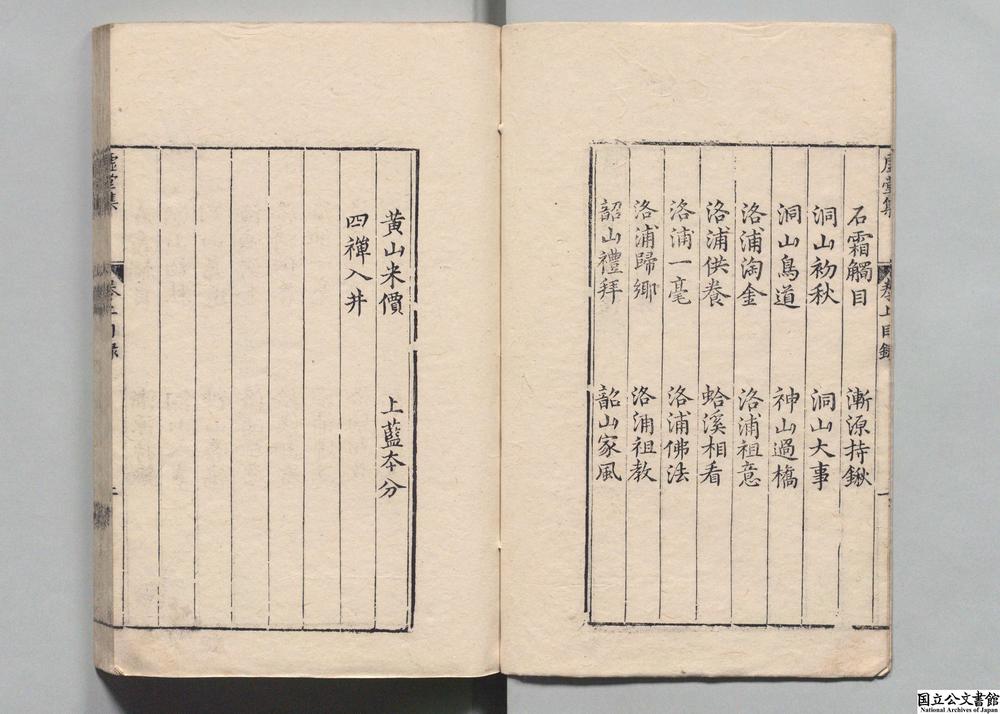 石霜觸目　漸源持鍬
洞山初秋　洞山大事
洞山鳥道　神山過橋
洛浦淘金　洛浦祖意
洛浦供養　蛤溪相看
洛浦一毫　洛浦佛法
洛浦歸鄉　洛浦祖教
韶山禮拜　韶山家風
虛堂集　卷上目錄　一
黃山米價　上藍夲分
四禪入井
虛堂集　卷上目録　二
国立公文書館
National Archives of Japan